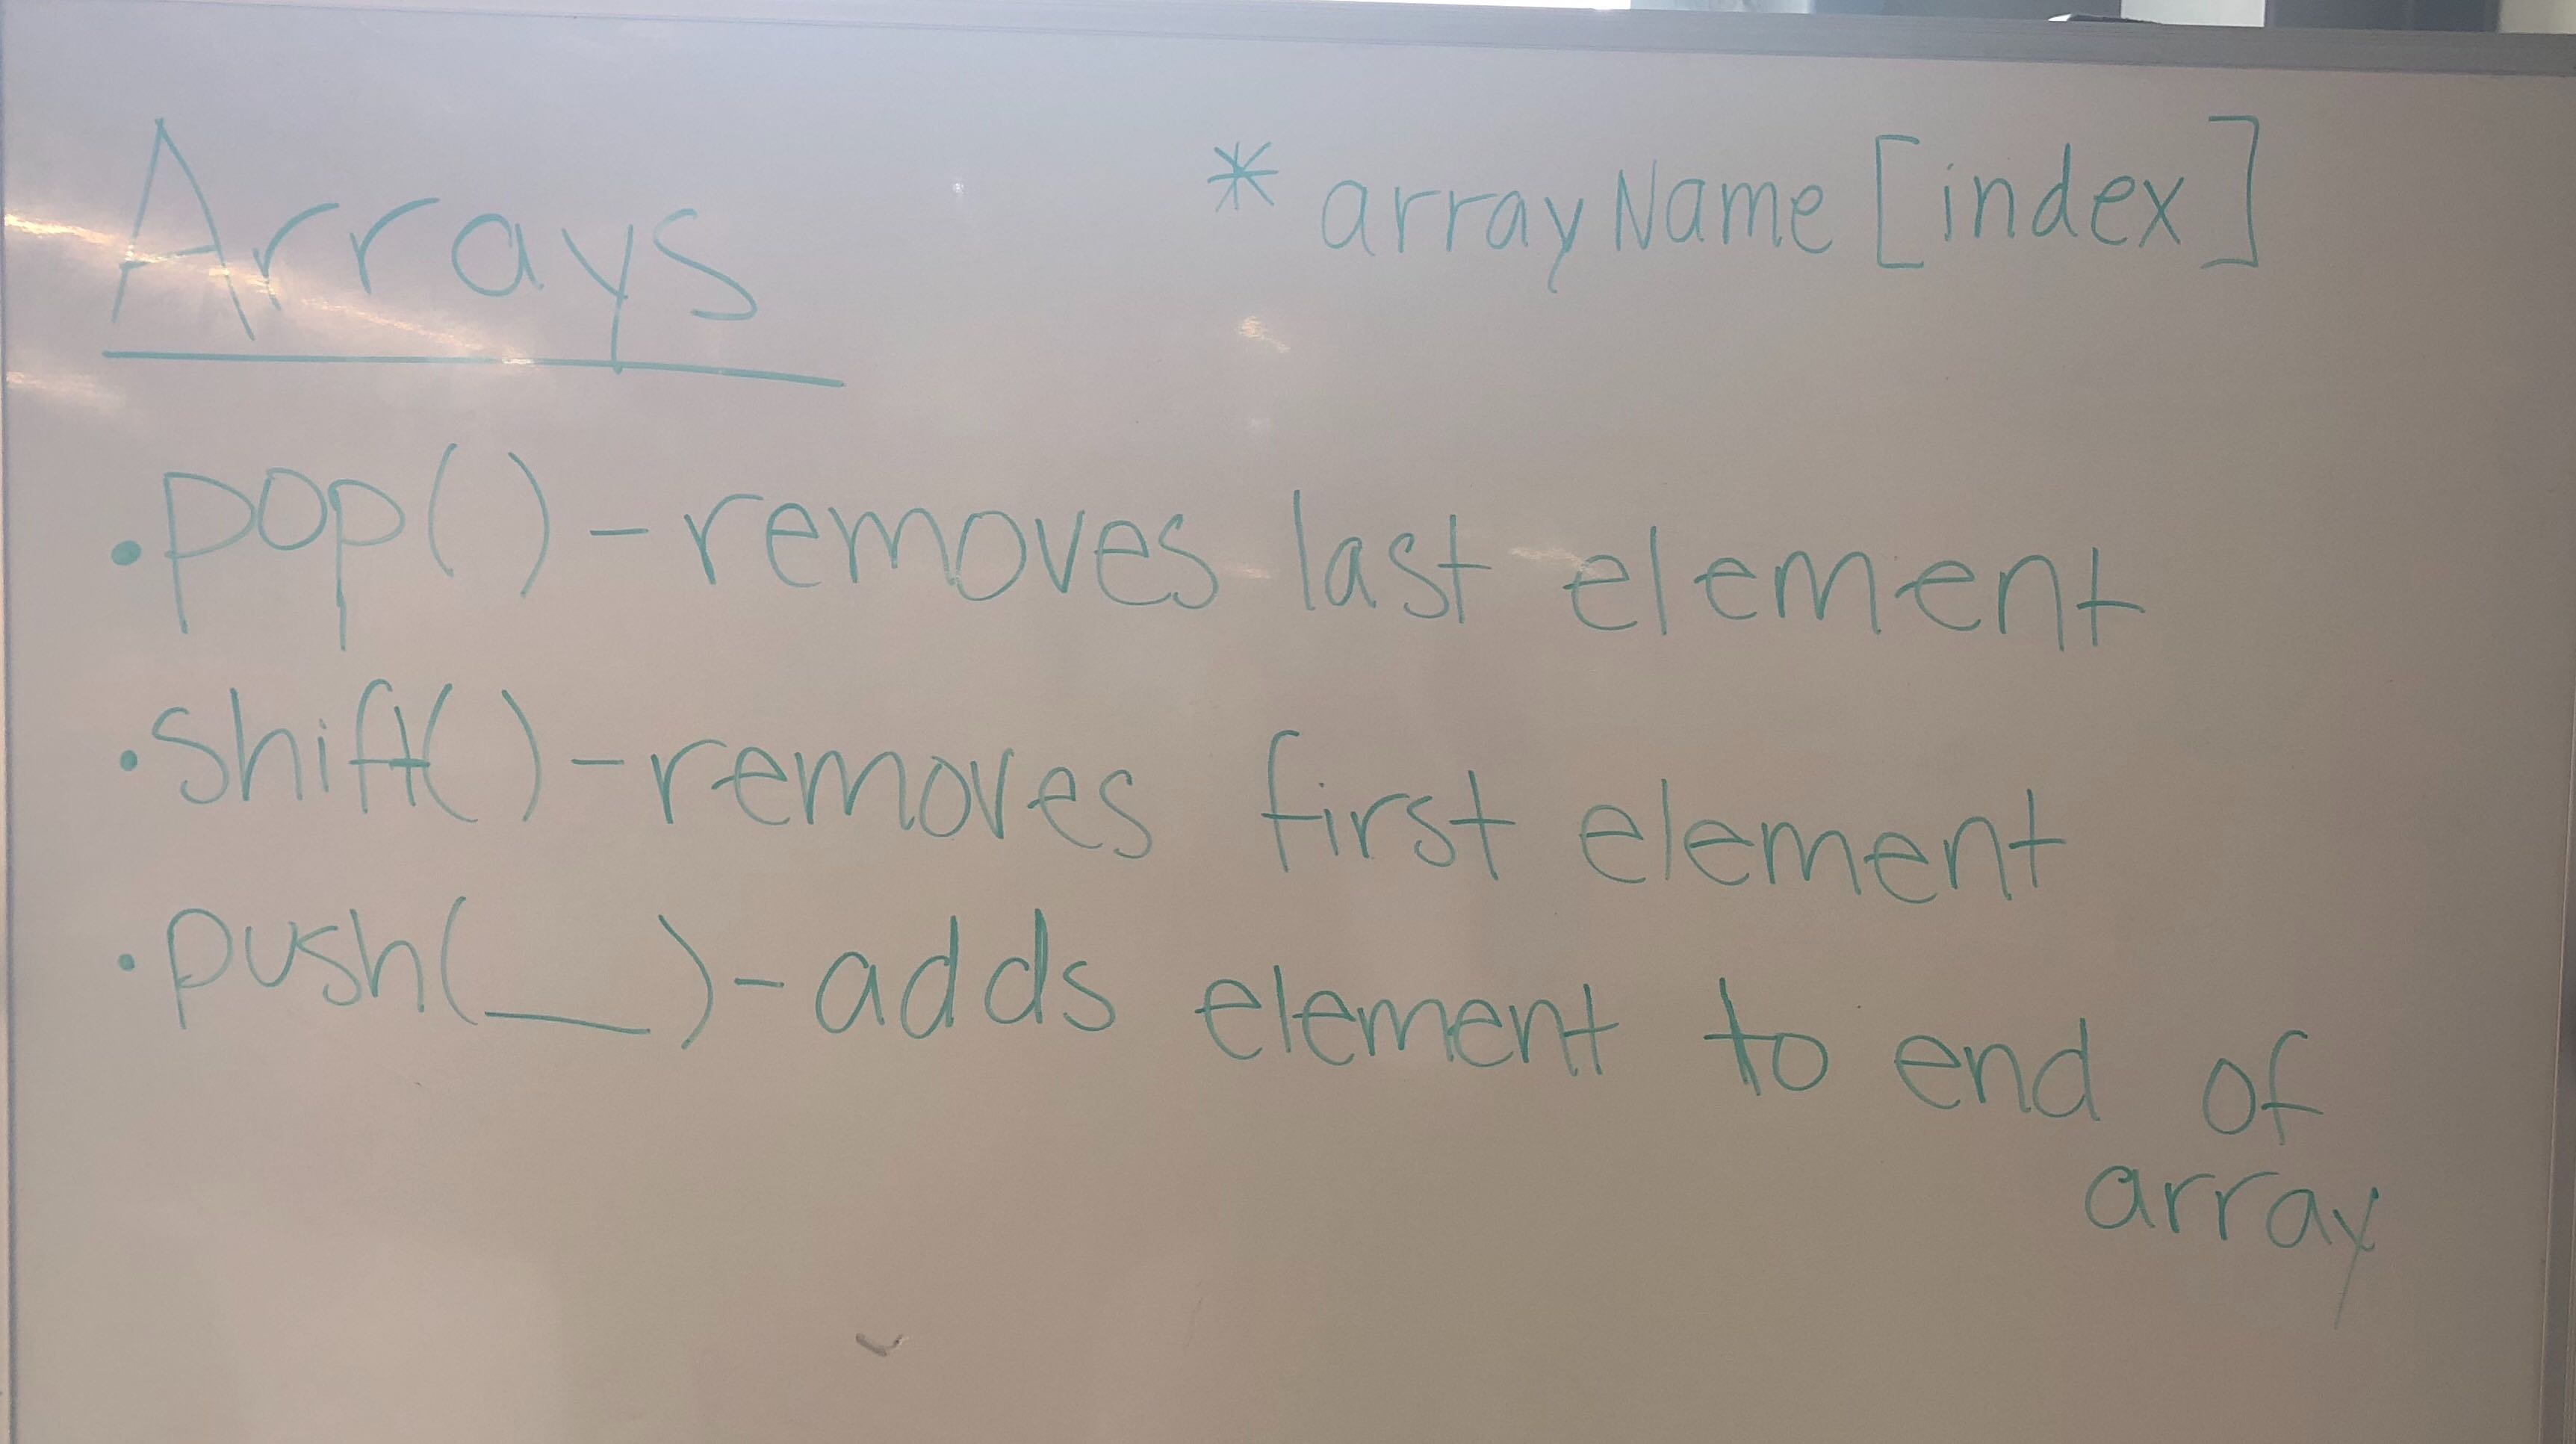 Arrays
* arrayName [index]
.pop() - removes last element
.shift() - removes first element
.push(__) - adds element to end of
array